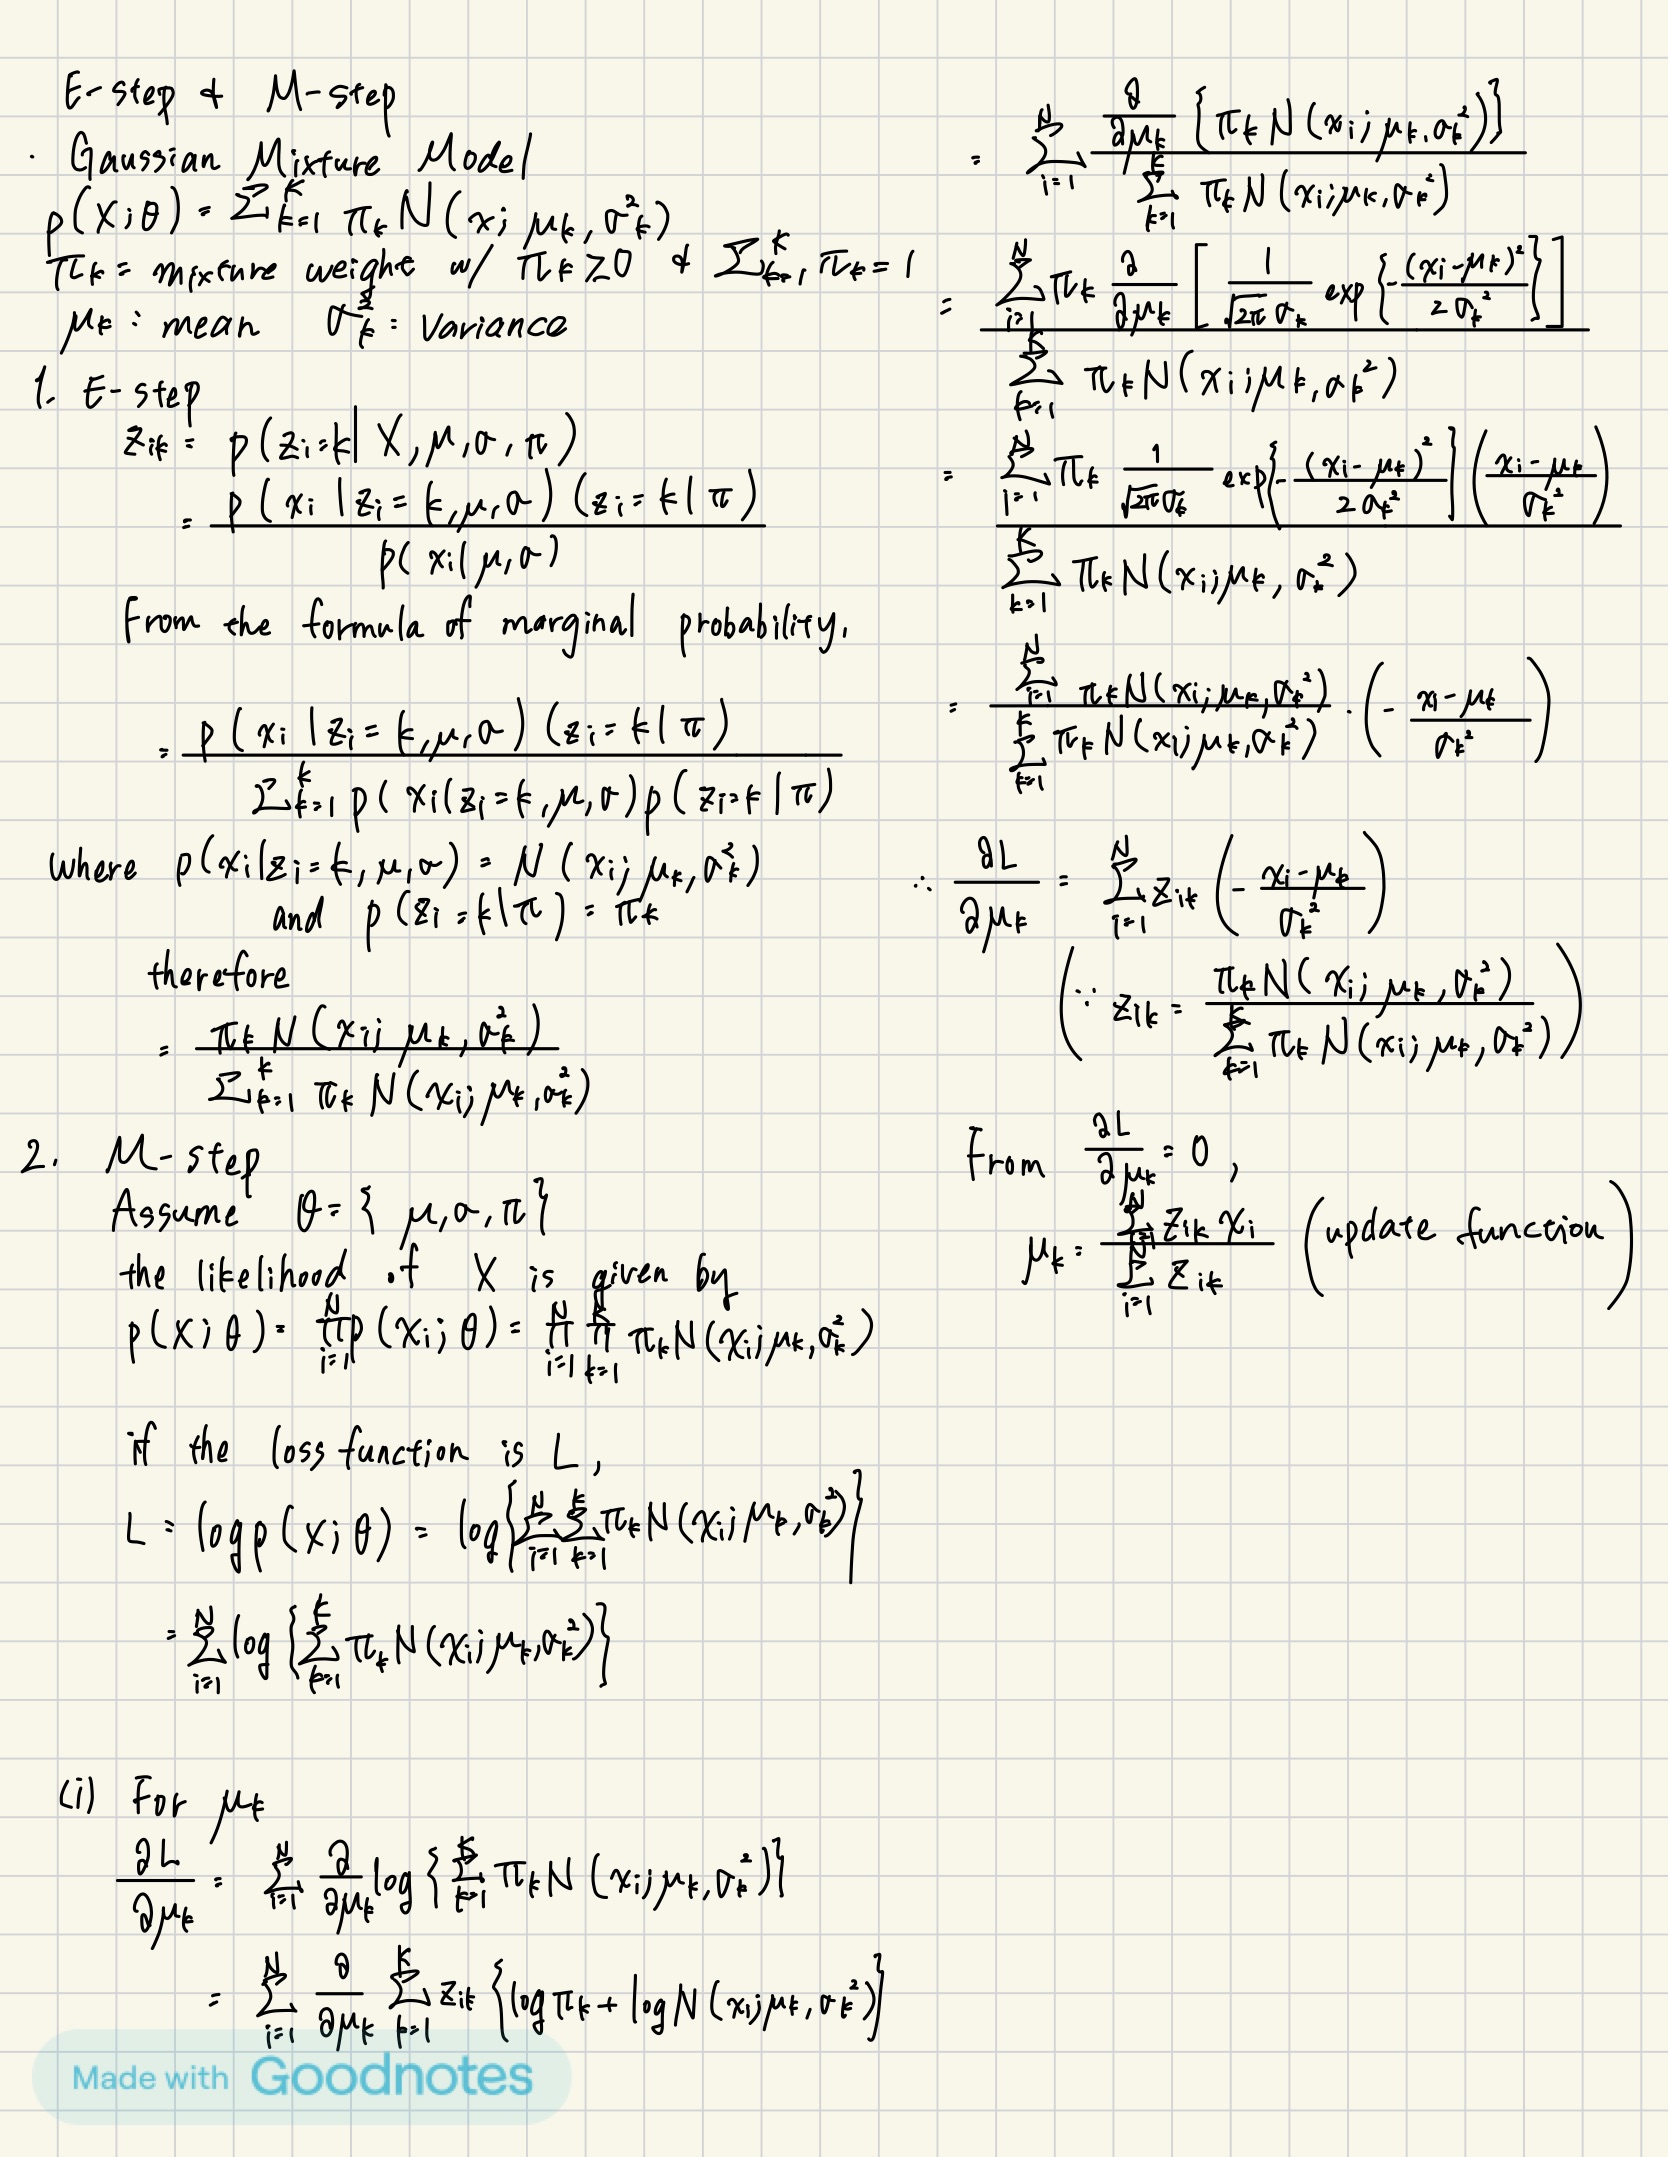 E-step & M-step
· Gaussian Mixture Model
p(X;θ) = Σ_{k=1}^{K} π_k N(x; μ_k, σ_k^2)
π_k = mixture weight w/ π_k ≥ 0 & Σ_{k=1}^{K} π_k = 1
μ_k : mean σ_k^2 : variance
1. E-step
z_ik = p(z_i = k | X, μ, σ, π)
= p(x_i | z_i = k, μ, σ)(z_i = k | π) / p(x_i | μ, σ)
From the formula of marginal probability,
= p(x_i | z_i = k, μ, σ)(z_i = k | π) / Σ_{k=1}^{K} p(x_i | z_i = k, μ, σ) p(z_i = k | π)
where p(x_i | z_i = k, μ, σ) = N(x_i; μ_k, σ_k^2)
and p(z_i = k | π) = π_k
therefore
= π_k N(x_i; μ_k, σ_k^2) / Σ_{k=1}^{K} π_k N(x_i; μ_k, σ_k^2)
2. M-step
Assume θ = { μ, σ, π }
the likelihood of X is given by
p(X;θ) = Π_{i=1}^{N} p(x_i; θ) = Π_{i=1}^{N} Π_{k=1}^{K} π_k N(x_i; μ_k, σ_k^2)
if the loss function is L,
L = log p(X;θ) = log{ Σ_{i=1}^{N} Σ_{k=1}^{K} π_k N(x_i; μ_k, σ_k^2) }
= Σ_{i=1}^{N} log { Σ_{k=1}^{K} π_k N(x_i; μ_k, σ_k^2) }
(i) For μ_k
∂L/∂μ_k = Σ_{i=1}^{N} ∂/∂μ_k log { Σ_{k=1}^{K} π_k N(x_i; μ_k, σ_k^2) }
= Σ_{i=1}^{N} ∂/∂μ_k Σ_{k=1}^{K} z_ik { log π_k + log N(x_i; μ_k, σ_k^2) }
Made with Goodnotes
= Σ_{i=1}^{N} ∂/∂μ_k { π_k N(x_i; μ_k, σ_k^2) } / Σ_{k=1}^{K} π_k N(x_i; μ_k, σ_k^2)
= Σ_{i=1}^{N} π_k ∂/∂μ_k [ 1/(√2π σ_k) exp{ -(x_i - μ_k)^2 / 2σ_k^2 } ] / Σ_{k=1}^{K} π_k N(x_i; μ_k, σ_k^2)
= Σ_{i=1}^{N} π_k 1/(√2π σ_k) exp{ -(x_i - μ_k)^2 / 2σ_k^2 } ( (x_i - μ_k) / σ_k^2 ) / Σ_{k=1}^{K} π_k N(x_i; μ_k, σ_k^2)
= Σ_{i=1}^{N} π_k N(x_i; μ_k, σ_k^2) / Σ_{k=1}^{K} π_k N(x_i; μ_k, σ_k^2) · ( - (x_i - μ_k) / σ_k^2 )
∴ ∂L/∂μ_k = Σ_{i=1}^{N} z_ik ( - (x_i - μ_k) / σ_k^2 )
( ∵ z_ik = π_k N(x_i; μ_k, σ_k^2) / Σ_{k=1}^{K} π_k N(x_i; μ_k, σ_k^2) )
From ∂L/∂μ_k = 0,
μ_k = Σ_{i=1}^{N} z_ik x_i / Σ_{i=1}^{N} z_ik (update function)